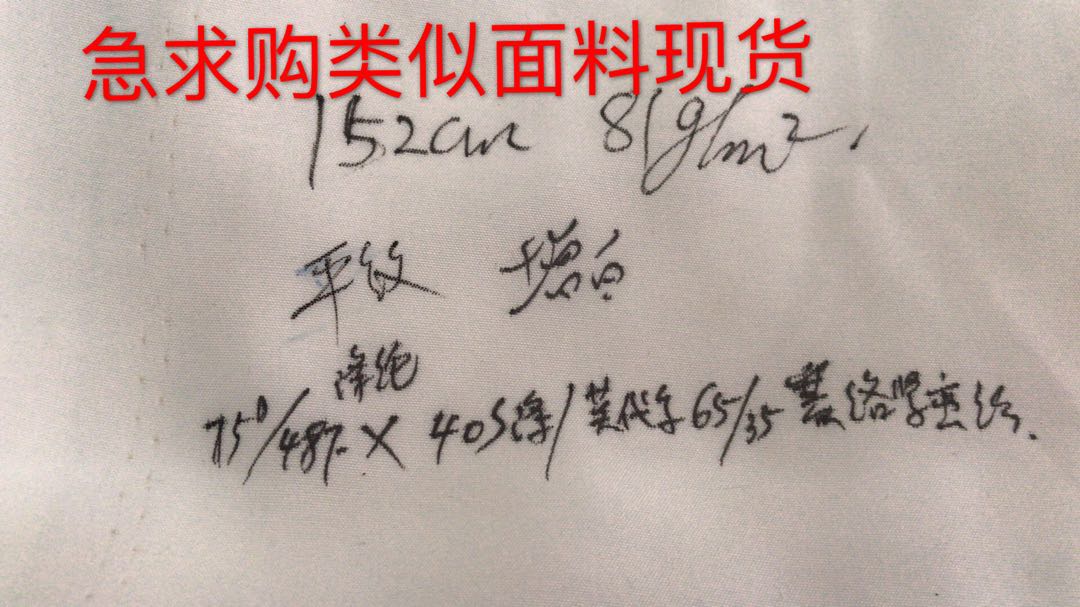 急求购类似面料现货
152cm 81g/m²
平纹 增白
涤纶
75D/48F × 40S涤/莫代尔65/35 赛络紧密纺.